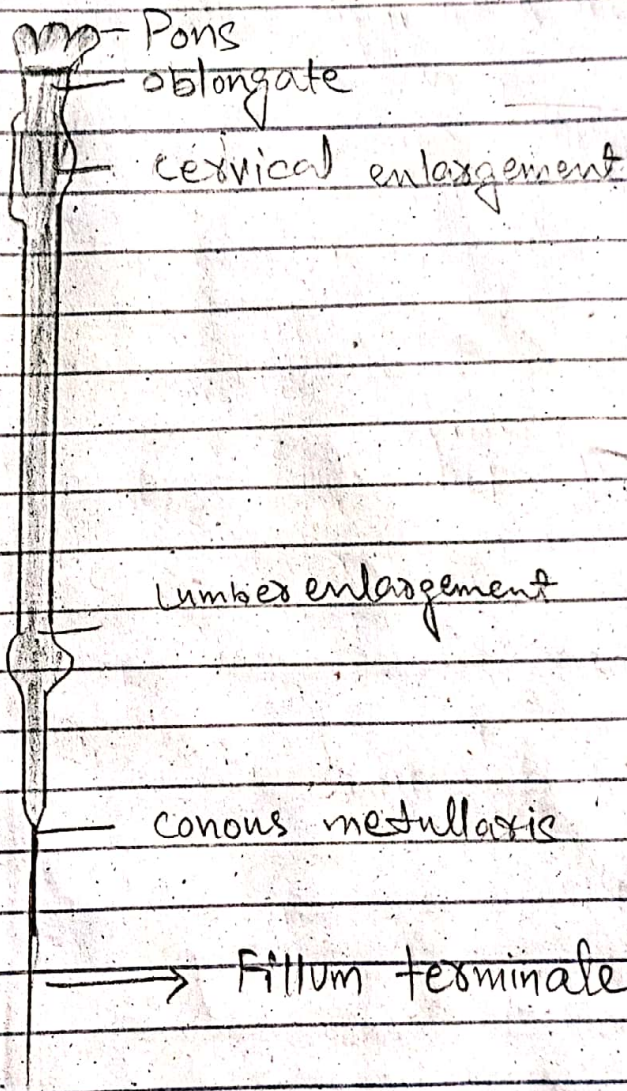 Pons
oblongate
cervical enlargement
Lumber enlargement
conous metullaris
Fillum terminale